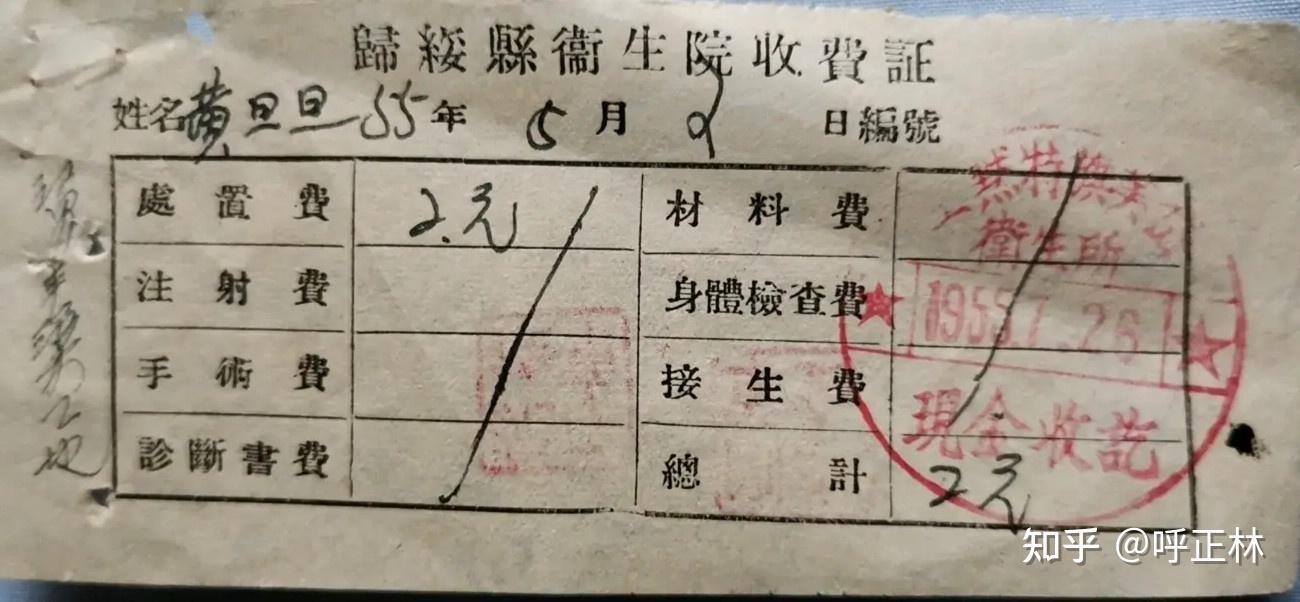 歸綏縣衞生院收費証
姓名 黄旦旦 55年 5月 2日 編號
處置費 2.元 材料費
注射費 身體檢查費
手術費 接生費
診斷書費 總計 2元
衛生所
現金收訖
知乎 @呼正林